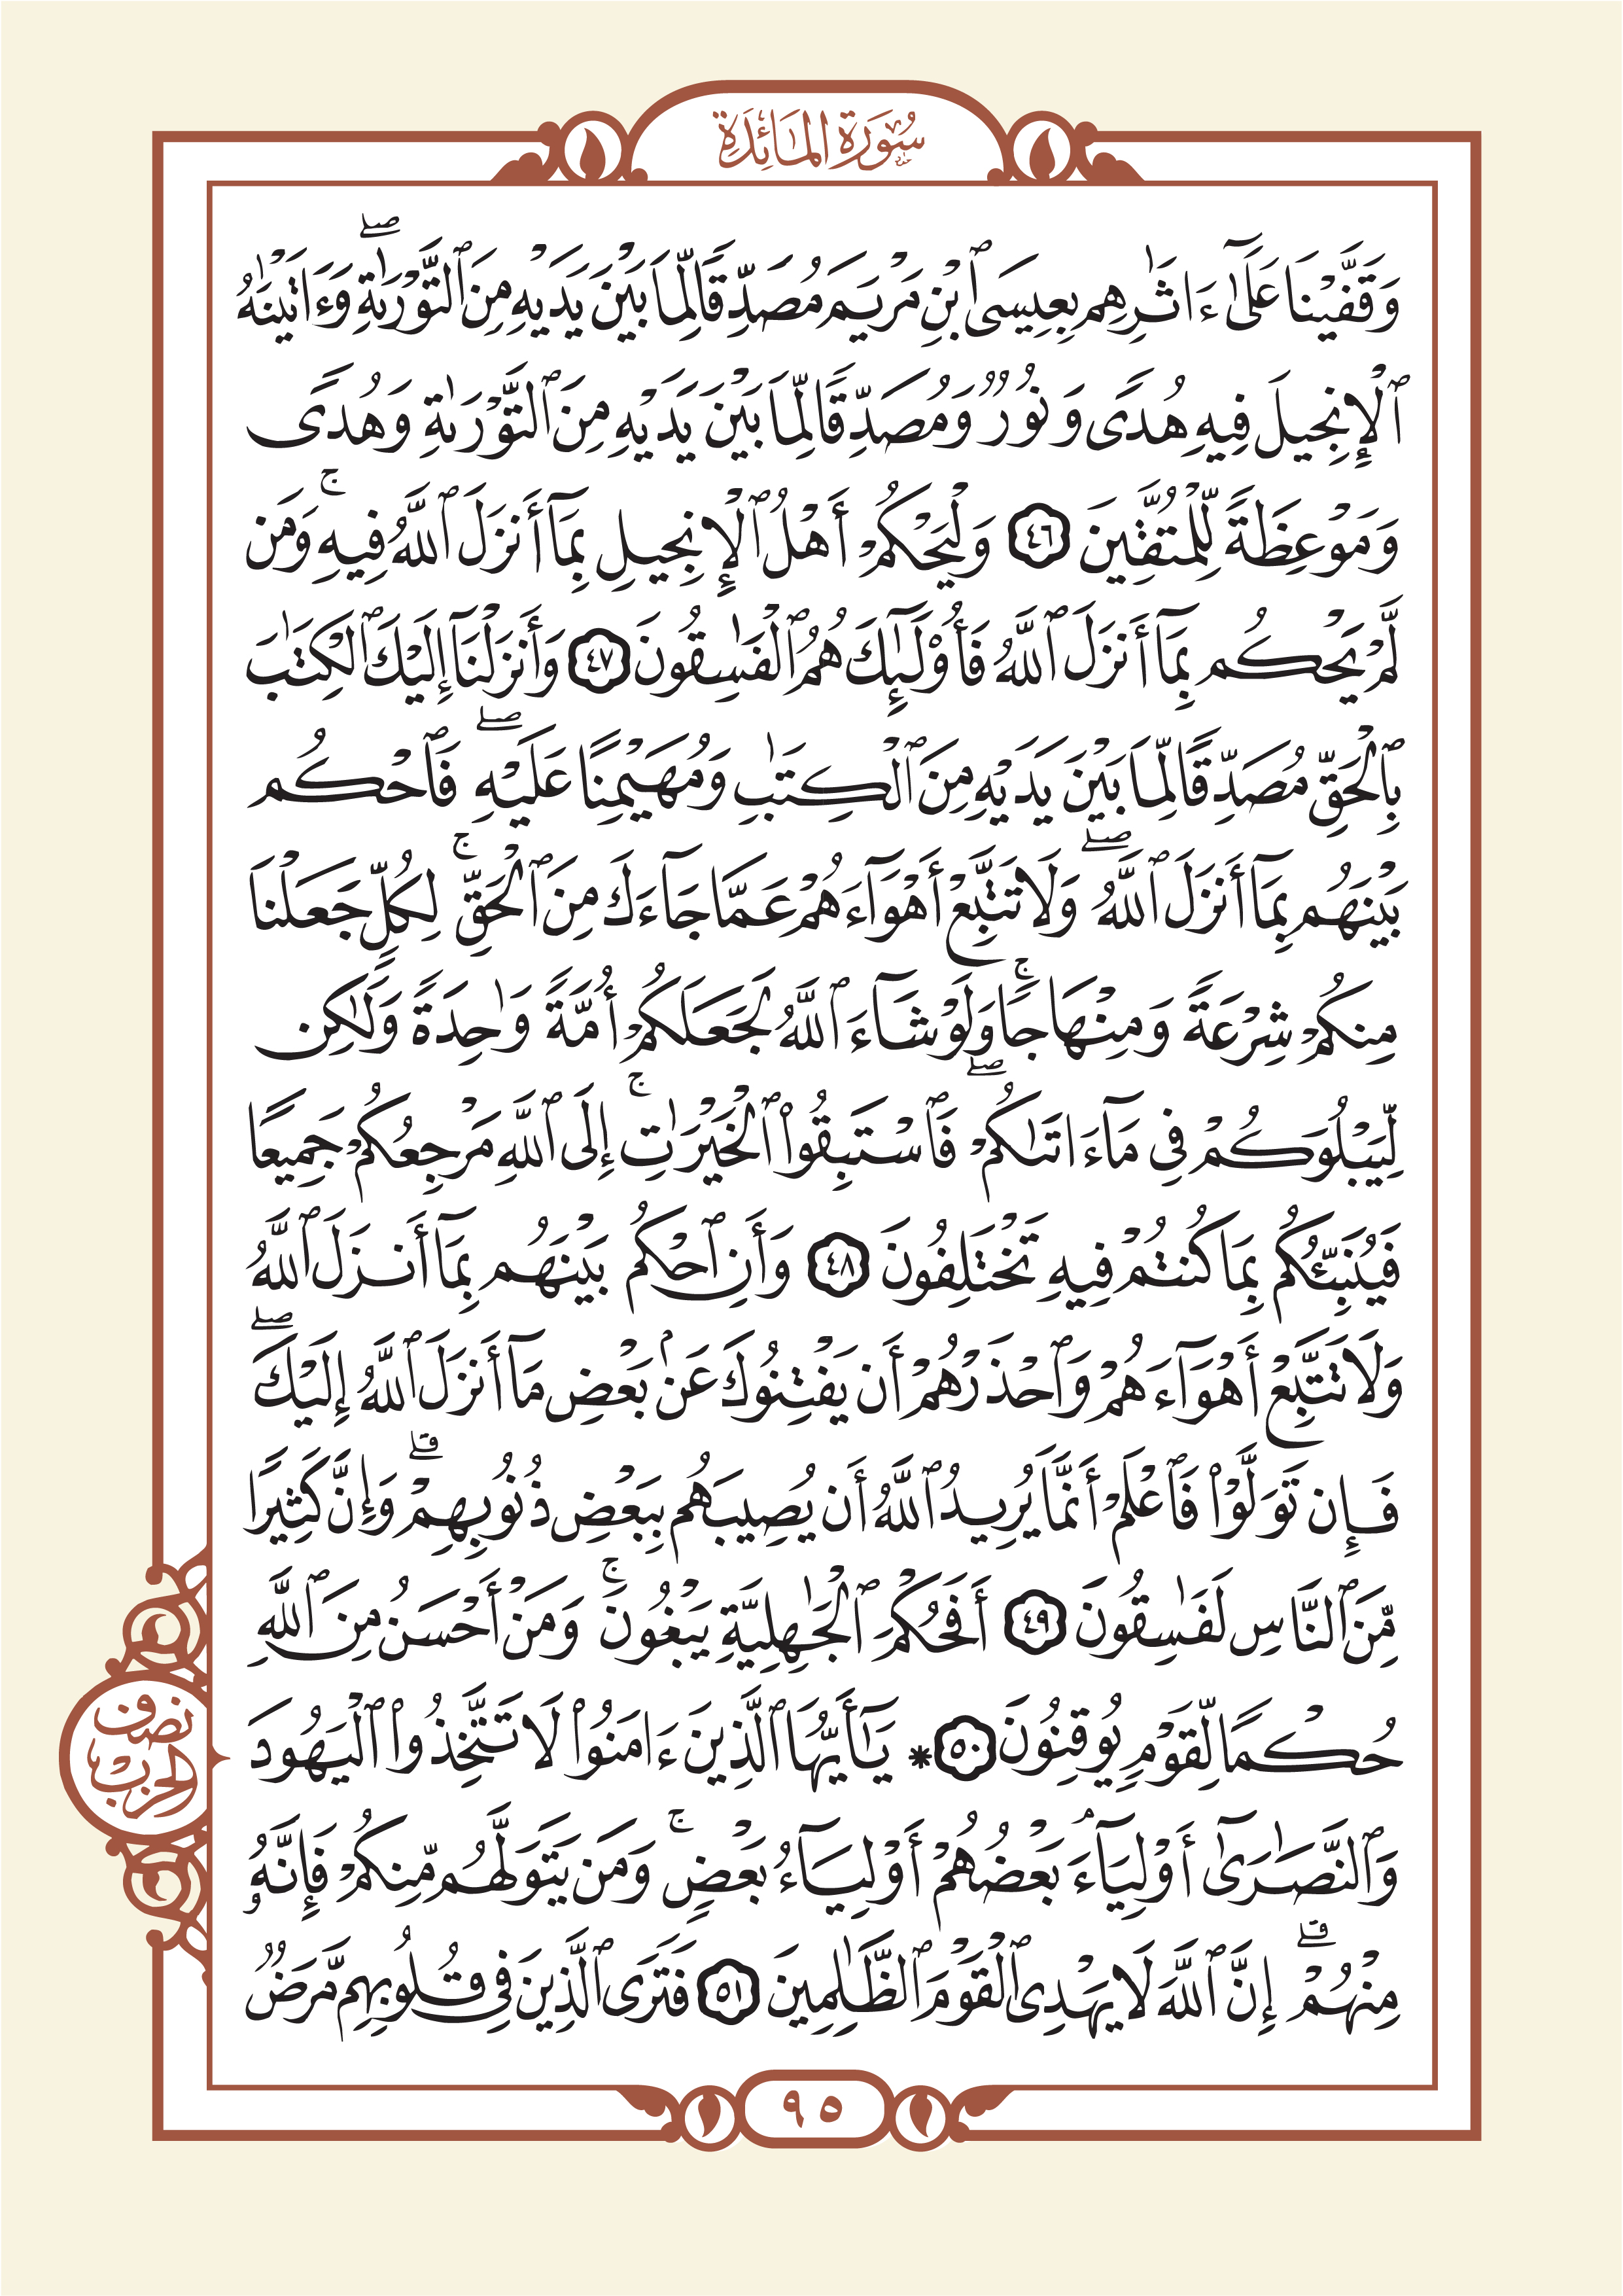 سُورَةُ المَائِدَةِ
وَقَفَّيْنَا عَلَىٰٓ ءَاثَٰرِهِم بِعِيسَى ٱبْنِ مَرْيَمَ مُصَدِّقًا لِّمَا بَيْنَ يَدَيْهِ مِنَ ٱلتَّوْرَىٰةِۖ وَءَاتَيْنَٰهُ
ٱلْإِنجِيلَ فِيهِ هُدًى وَنُورٌ وَمُصَدِّقًا لِّمَا بَيْنَ يَدَيْهِ مِنَ ٱلتَّوْرَىٰةِ وَهُدًى
وَمَوْعِظَةً لِّلْمُتَّقِينَ ٤٦ وَلْيَحْكُمْ أَهْلُ ٱلْإِنجِيلِ بِمَآ أَنزَلَ ٱللَّهُ فِيهِۚ وَمَن
لَّمْ يَحْكُم بِمَآ أَنزَلَ ٱللَّهُ فَأُو۟لَٰٓئِكَ هُمُ ٱلْفَٰسِقُونَ ٤٧ وَأَنزَلْنَآ إِلَيْكَ ٱلْكِتَٰبَ
بِٱلْحَقِّ مُصَدِّقًا لِّمَا بَيْنَ يَدَيْهِ مِنَ ٱلْكِتَٰبِ وَمُهَيْمِنًا عَلَيْهِۖ فَٱحْكُم
بَيْنَهُم بِمَآ أَنزَلَ ٱللَّهُۖ وَلَا تَتَّبِعْ أَهْوَآءَهُمْ عَمَّا جَآءَكَ مِنَ ٱلْحَقِّۚ لِكُلٍّ جَعَلْنَا
مِنكُمْ شِرْعَةً وَمِنْهَاجًاۚ وَلَوْ شَآءَ ٱللَّهُ لَجَعَلَكُمْ أُمَّةً وَٰحِدَةً وَلَٰكِن
لِّيَبْلُوَكُمْ فِى مَآ ءَاتَىٰكُمْۖ فَٱسْتَبِقُوا۟ ٱلْخَيْرَٰتِۚ إِلَى ٱللَّهِ مَرْجِعُكُمْ جَمِيعًا
فَيُنَبِّئُكُم بِمَا كُنتُمْ فِيهِ تَخْتَلِفُونَ ٤٨ وَأَنِ ٱحْكُم بَيْنَهُم بِمَآ أَنزَلَ ٱللَّهُ
وَلَا تَتَّبِعْ أَهْوَآءَهُمْ وَٱحْذَرْهُمْ أَن يَفْتِنُوكَ عَنۢ بَعْضِ مَآ أَنزَلَ ٱللَّهُ إِلَيْكَۖ
فَإِن تَوَلَّوْا۟ فَٱعْلَمْ أَنَّمَا يُرِيدُ ٱللَّهُ أَن يُصِيبَهُم بِبَعْضِ ذُنُوبِهِمْۗ وَإِنَّ كَثِيرًا
مِّنَ ٱلنَّاسِ لَفَٰسِقُونَ ٤٩ أَفَحُكْمَ ٱلْجَٰهِلِيَّةِ يَبْغُونَۚ وَمَنْ أَحْسَنُ مِنَ ٱللَّهِ
حُكْمًا لِّقَوْمٍ يُوقِنُونَ ٥٠ * يَٰٓأَيُّهَا ٱلَّذِينَ ءَامَنُوا۟ لَا تَتَّخِذُوا۟ ٱلْيَهُودَ
وَٱلنَّصَٰرَىٰٓ أَوْلِيَآءَۘ بَعْضُهُمْ أَوْلِيَآءُ بَعْضٍۚ وَمَن يَتَوَلَّهُم مِّنكُمْ فَإِنَّهُۥ
مِنْهُمْۗ إِنَّ ٱللَّهَ لَا يَهْدِى ٱلْقَوْمَ ٱلظَّٰلِمِينَ ٥١ فَتَرَى ٱلَّذِينَ فِى قُلُوبِهِم مَّرَضٌ
نصف
الحزب
٩٥